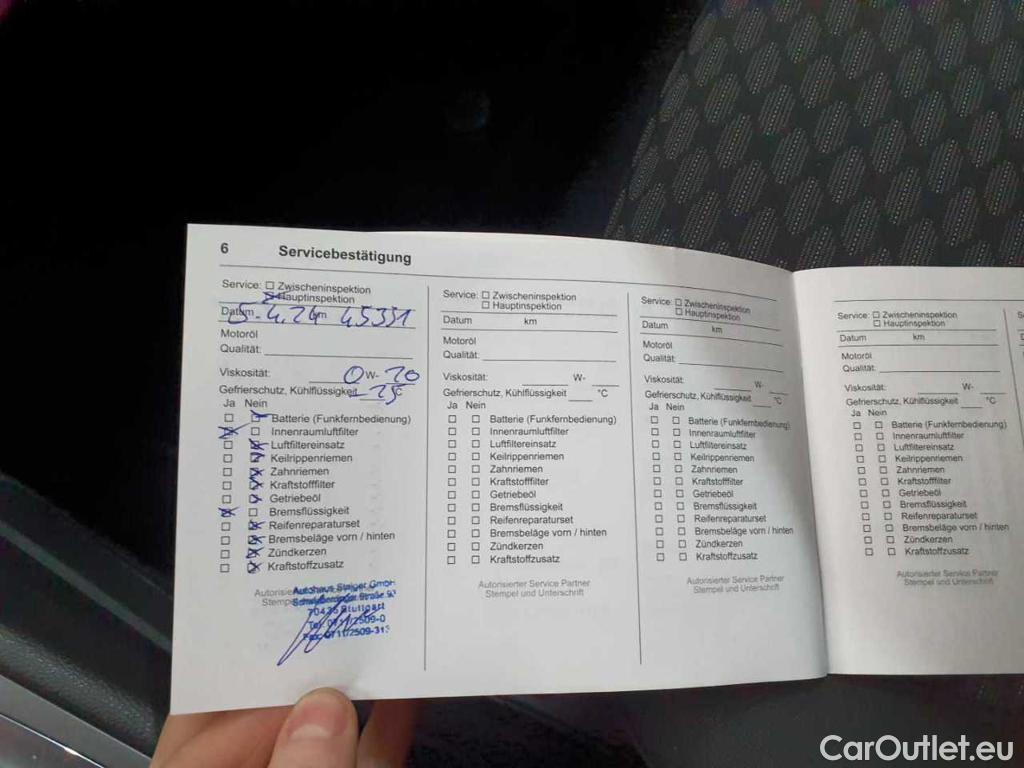 6 Servicebestätigung
Service: ☐ Zwischeninspektion
☒ Hauptinspektion
Datum 5.4.24 km 45331
Motoröl
Qualität:
Viskosität: 0 W- 20
Gefrierschutz, Kühlflüssigkeit -25 °C
Ja Nein
☐ ☒ Batterie (Funkfernbedienung)
☒ ☐ Innenraumluftfilter
☐ ☒ Luftfiltereinsatz
☐ ☒ Keilrippenriemen
☐ ☒ Zahnriemen
☐ ☒ Kraftstofffilter
☐ ☒ Getriebeöl
☒ ☐ Bremsflüssigkeit
☐ ☒ Reifenreparaturset
☐ ☒ Bremsbeläge vorn / hinten
☐ ☒ Zündkerzen
☐ ☒ Kraftstoffzusatz
Autohaus Staiger GmbH
Straße 93
Stuttgart
Tel. 0711/2509-0
Fax: 0711/2509-313
Service: ☐ Zwischeninspektion
☐ Hauptinspektion
Datum km
Motoröl
Qualität:
Viskosität: W-
Gefrierschutz, Kühlflüssigkeit °C
Ja Nein
☐ ☐ Batterie (Funkfernbedienung)
☐ ☐ Innenraumluftfilter
☐ ☐ Luftfiltereinsatz
☐ ☐ Keilrippenriemen
☐ ☐ Zahnriemen
☐ ☐ Kraftstofffilter
☐ ☐ Getriebeöl
☐ ☐ Bremsflüssigkeit
☐ ☐ Reifenreparaturset
☐ ☐ Bremsbeläge vorn / hinten
☐ ☐ Zündkerzen
☐ ☐ Kraftstoffzusatz
Autorisierter Service Partner
Stempel und Unterschrift
Service: ☐ Zwischeninspektion
☐ Hauptinspektion
Datum km
Motoröl
Qualität:
Viskosität: W-
Gefrierschutz, Kühlflüssigkeit °C
Ja Nein
☐ ☐ Batterie (Funkfernbedienung)
☐ ☐ Innenraumluftfilter
☐ ☐ Luftfiltereinsatz
☐ ☐ Keilrippenriemen
☐ ☐ Zahnriemen
☐ ☐ Kraftstofffilter
☐ ☐ Getriebeöl
☐ ☐ Bremsflüssigkeit
☐ ☐ Reifenreparaturset
☐ ☐ Bremsbeläge vorn / hinten
☐ ☐ Zündkerzen
☐ ☐ Kraftstoffzusatz
Autorisierter Service Partner
Stempel und Unterschrift
Service: ☐ Zwischeninspektion
☐ Hauptinspektion
Datum km
Motoröl
Qualität:
Viskosität: W-
Gefrierschutz, Kühlflüssigkeit °C
Ja Nein
☐ ☐ Batterie (Funkfernbedienung)
☐ ☐ Innenraumluftfilter
☐ ☐ Luftfiltereinsatz
☐ ☐ Keilrippenriemen
☐ ☐ Zahnriemen
☐ ☐ Kraftstofffilter
☐ ☐ Getriebeöl
☐ ☐ Bremsflüssigkeit
☐ ☐ Reifenreparaturset
☐ ☐ Bremsbeläge vorn / hinten
☐ ☐ Zündkerzen
☐ ☐ Kraftstoffzusatz
Autorisierter Service Partner
Stempel und Unterschrift
CarOutlet.eu